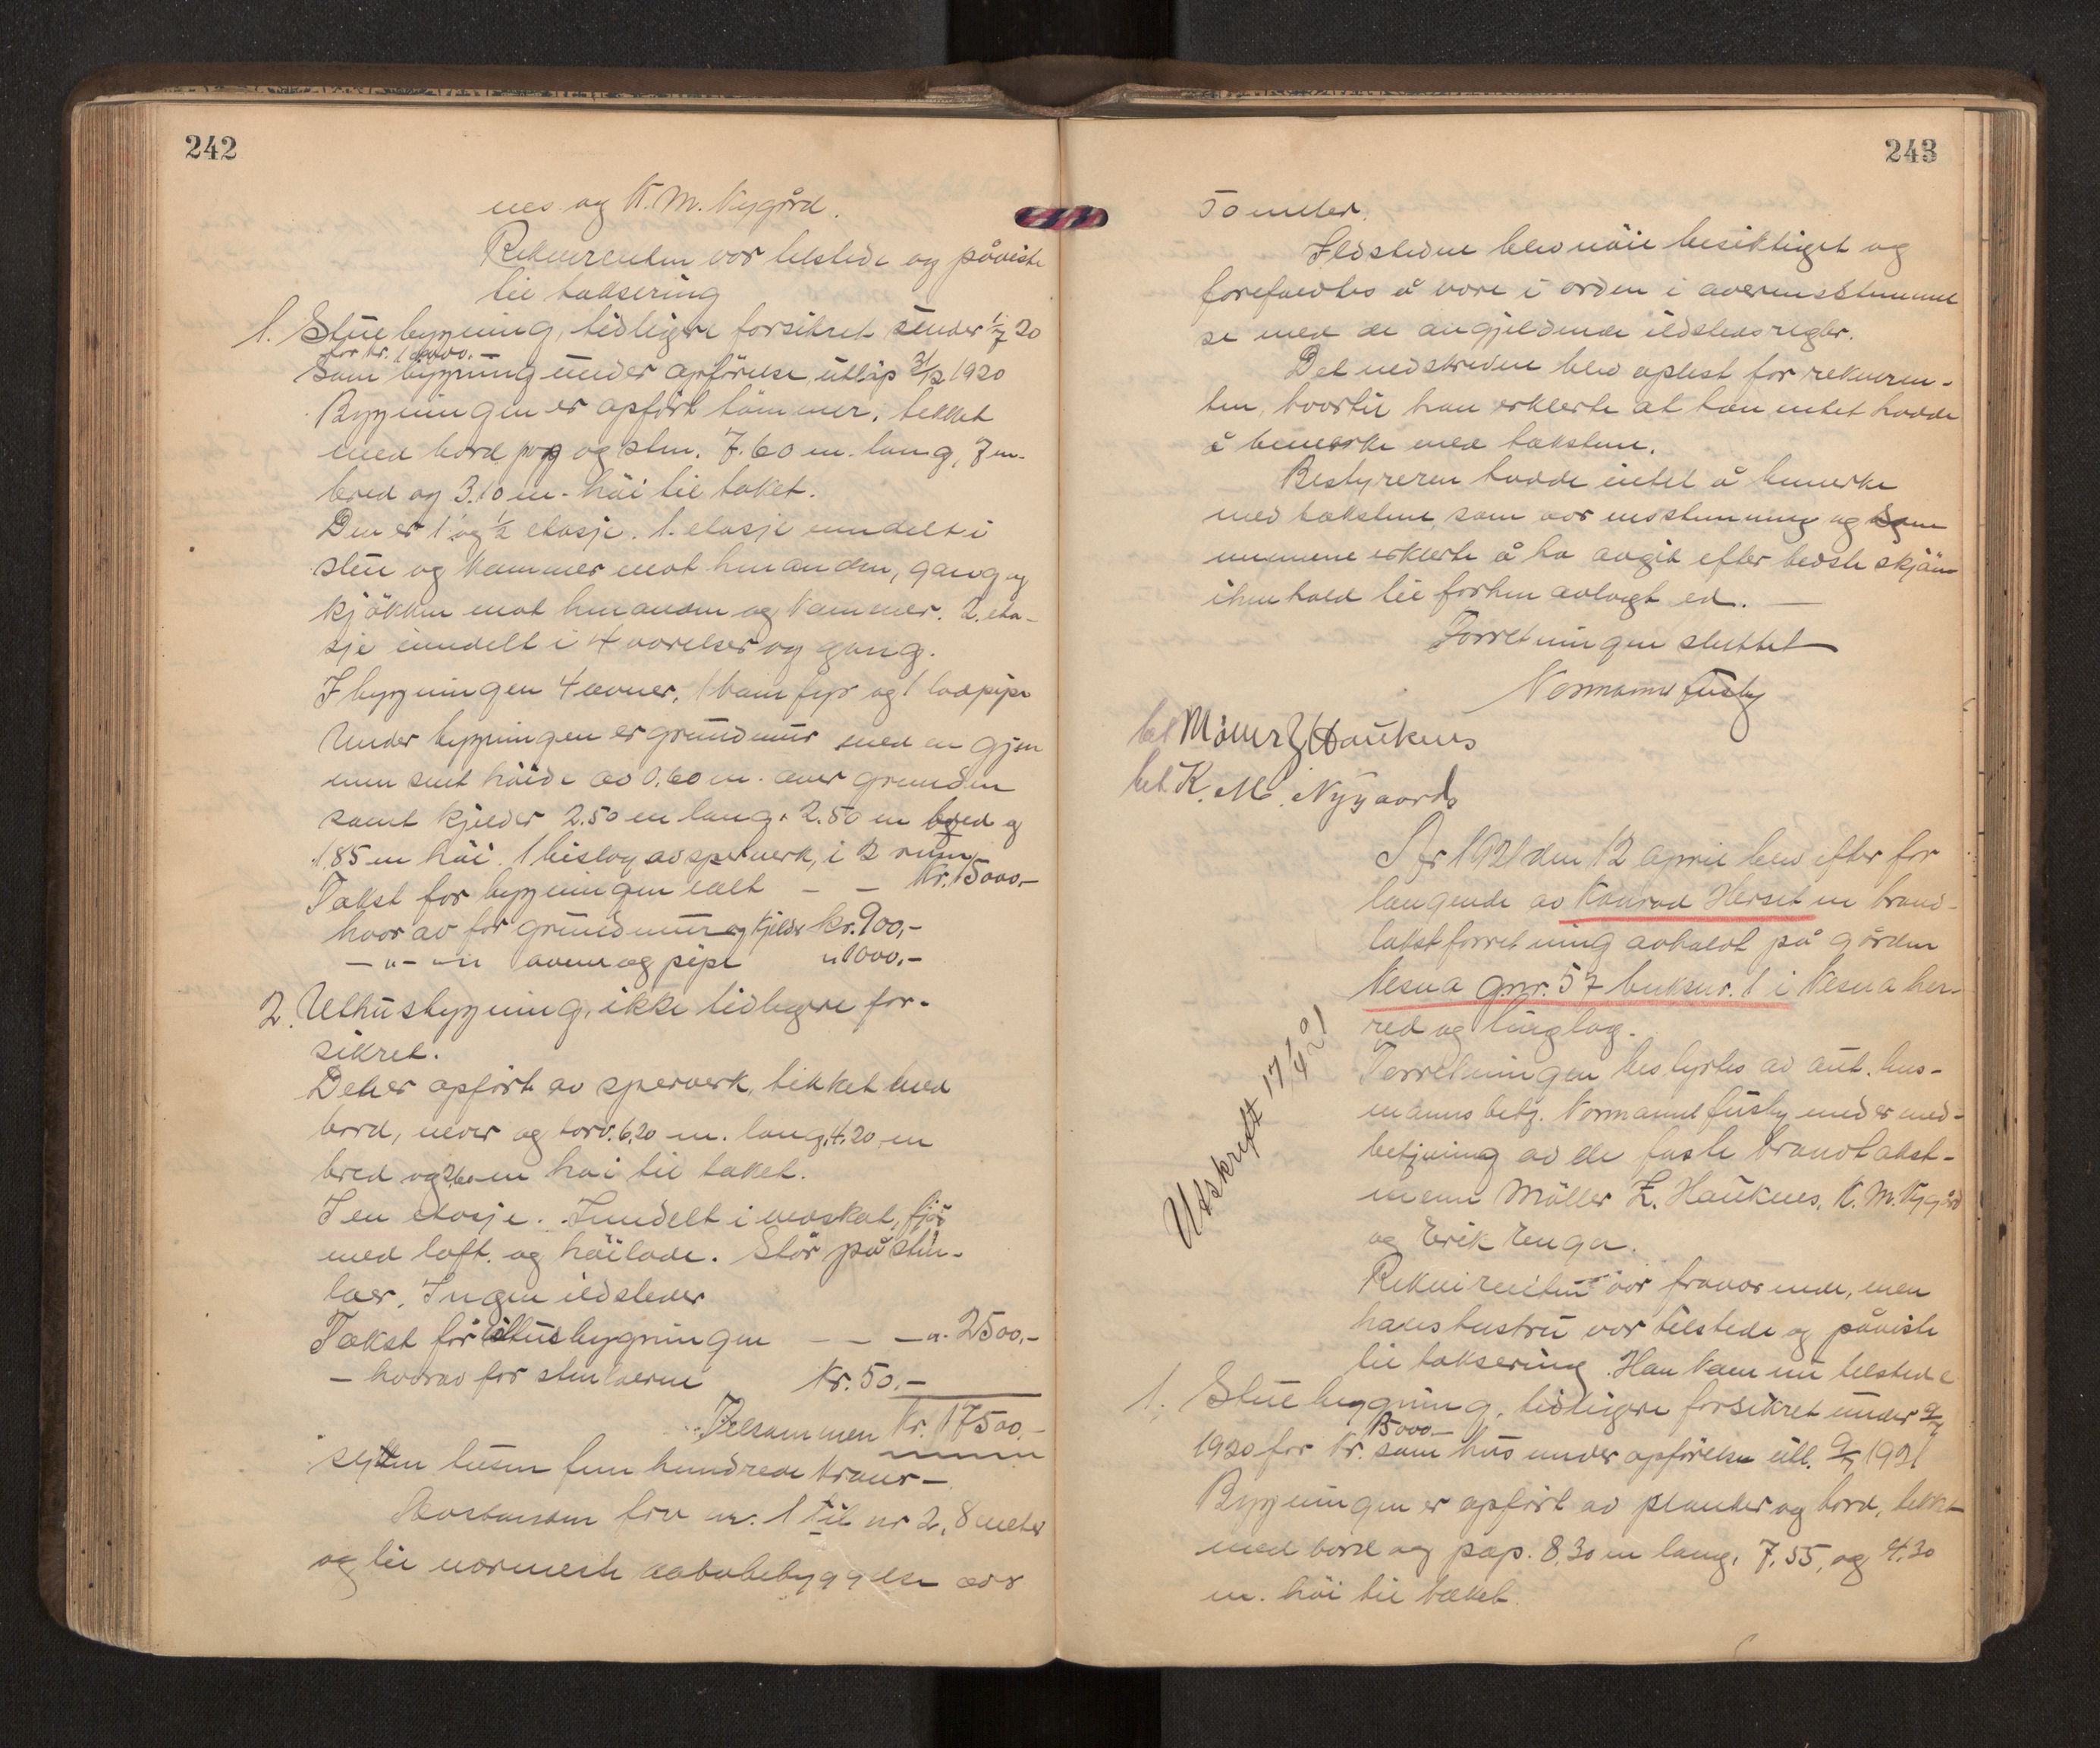 242
nes og K. M. Nygård.
Rekvirenten var tilstede og påviste
til taksering
1. Stuebygning, tidligere forsikret under 1/7 20
for kr. 10000.-
som bygning under opførelse, utløp 31/12 1920
Bygningen er opført tømmer, tekket
med bord, papp og sten. 7.60 m. lang, 7 m.
bred og 3.10 m. høi til taket.
Den er 1 og 1/2 etasje. 1. etasje inndelt i
stue og kammer mot hinanden, gang og
kjøkken mot hinanden og kammer. 2. eta-
sje inndelt i 4 værelser og gang.
I bygningen 4 ovner, 1 komfyr og 1 lodpipe
Under bygningen er grundmur med en gjen
nemsnit høide av 0.60 m. over grunden
samt kjelder 2.50 m lang, 2.50 m bred og
1.85 m høi. 1 bislag av sperverk, i 2 rum
Takst for bygningen ialt - - Kr. 15000,-
hvorav for grundmur og kjelder kr. 900,-
-"- -"- ovner og pipe " 1000,-
2. Uthusbygning, ikke tidligere for-
sikret.
Det er opført av sperverk, tekket med
bord, never og torv. 6,20 m. lang, 4,20 m
bred og 2,60 m høi til taket.
I en etasje. Inndelt i vedskot, fjøs
med loft og høilade. Står på sten-
laer. Ingen ildsteder
Takst for uthusbygningen - - - " 2500,-
- hvorav for stenlaerne kr. 50.-
Tilsammen Kr. 17500.-
sytten tusen fem hundrede kroner -
Avstanden fra nr. 1 til nr 2, 8 meter
og til nærmeste nabobebyggelse over
243
50 meter.
Ildstedene blev nøie besiktiget og
forefandtes å være i orden i overensstemmel
se med de angjeldende ildstedsregler.
Det nedskrevne blev oplest for rekviren-
ten, hvortil han erklerte at han intet hadde
å bemerke med taksten.
Bestyreren hadde intet å bemerke
med taksten, som var enstemmig og som
mennene erklerte å ha avgit efter bedste skjøn
i henhold til forhen avlagt ed. -
Forretningen sluttet
Normann Fusby
bet Møller Z Hauknes
bet. K. M. Nygaard
År 1921 den 12 april blev efter for
langende av Konrad Herset en brand-
takstforretning avholdt på gården
Nesna gnr. 57 bruksnr. 1 i Nesna her-
red og tinglag.
Utskrift 17/4 21
Forretningen bestyrtes av aut. lens-
mannsbetj. Normann Fusby under med-
betjening av de faste brandtakst-
menn Møller Z. Hauknes, K. M. Nygård
og Erik Enga.
Rekvirenten var fraværende, men
hans hustru var tilstede og påviste
til taksering. Han kom nu tilstede
1. Stuebygning, tidligere forsikret under 9/7
15000.-
1920 for kr. som hus under opførelse utl. 9/7 1921
Bygningen er opført av planker og bord, tekket
med bord og pap. 8,30 m lang, 7,55, og 4,30
m. høi til taket.